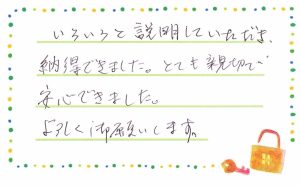 いろいろと説明していただき、
納得できました。とても親切で
安心できました。
よろしく御願いします。